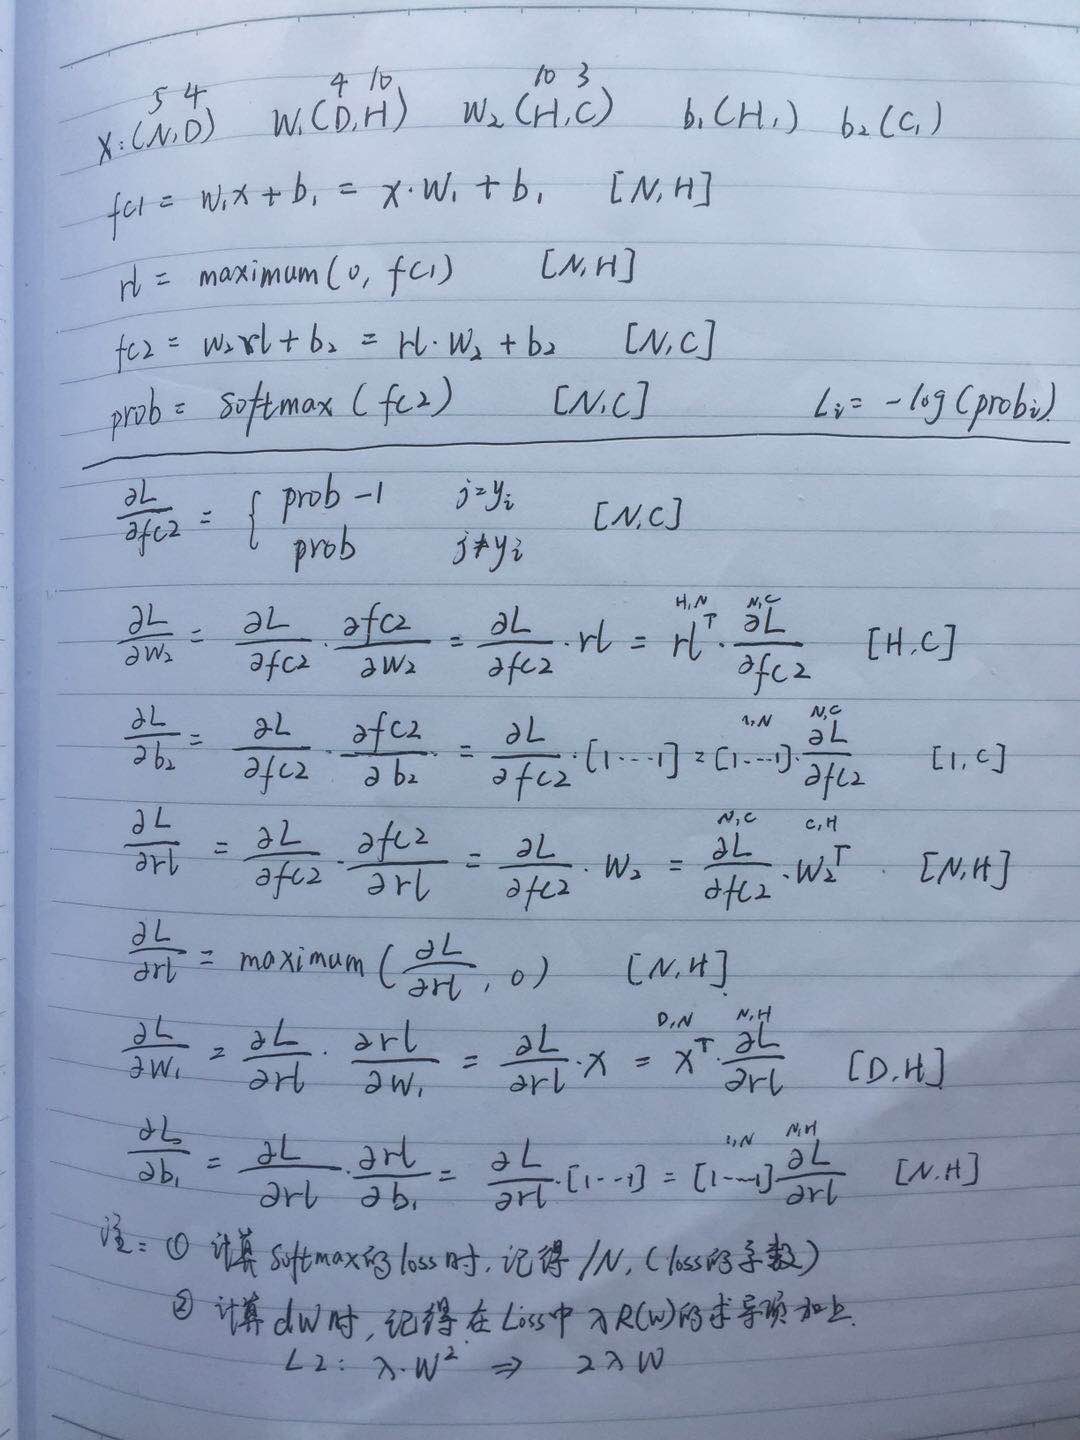 5 4 4 10 10 3
X:(N,D) W₁(D,H) W₂(H,C) b₁(H,) b₂(C,)
fc1 = W₁X + b₁ = X·W₁ + b₁ [N,H]
rl = maximum(0, fc1) [N,H]
fc2 = W₂rl + b₂ = rl·W₂ + b₂ [N,C]
prob = softmax(fc2) [N,C] Lᵢ = -log(probᵢ)
∂L/∂fc2 = { prob -1 j=yᵢ [N,C]
prob j≠yᵢ
H,N N,C
∂L/∂W₂ = ∂L/∂fc2 · ∂fc2/∂W₂ = ∂L/∂fc2 · rl = rlᵀ · ∂L/∂fc2 [H,C]
1,N N,C
∂L/∂b₂ = ∂L/∂fc2 · ∂fc2/∂b₂ = ∂L/∂fc2 · [1···1] = [1···1] · ∂L/∂fc2 [1,C]
N,C C,H
∂L/∂rl = ∂L/∂fc2 · ∂fc2/∂rl = ∂L/∂fc2 · W₂ = ∂L/∂fc2 · W₂ᵀ [N,H]
∂L/∂rl = maximum(∂L/∂rl, 0) [N,H]
D,N N,H
∂L/∂W₁ = ∂L/∂rl · ∂rl/∂W₁ = ∂L/∂rl · X = Xᵀ · ∂L/∂rl [D,H]
1,N N,H
∂L/∂b₁ = ∂L/∂rl · ∂rl/∂b₁ = ∂L/∂rl · [1···1] = [1···1] · ∂L/∂rl [N,H]
注: ① 计算softmax的loss时,记得/N,(loss的系数)
② 计算dW时,记得在Loss中λR(W)的求导项加上.
L2: λ·W² ⇒ 2λW